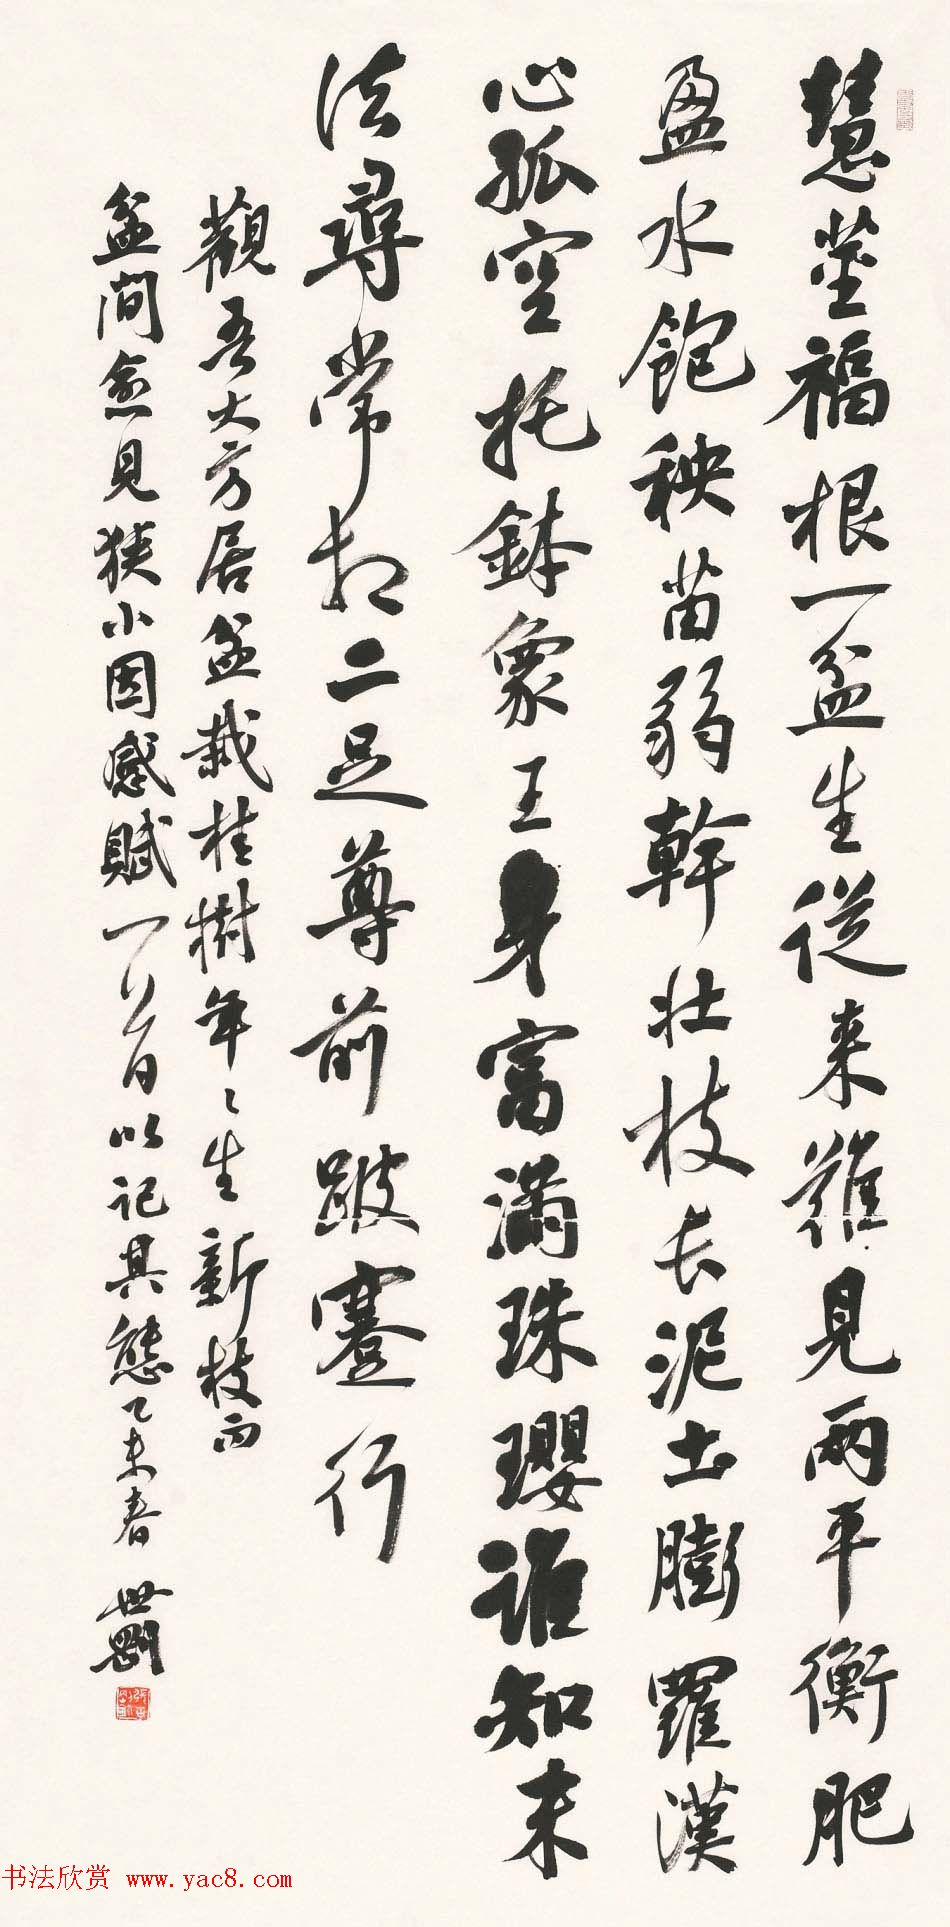 慧莖福根一盆生從来難見兩平衡肥
盈水飽秧苗弱幹壯枝长泥土膨羅漢
心孤空托鉢象王身富滿珠瓔誰知末
法尋常相二足尊前跛蹇行
觀吾大方居盆栽桂樹年々生新枝而
盆間愈見狹小因感賦一首以记其態乙未春 世剛
书法欣赏 www.yac8.com